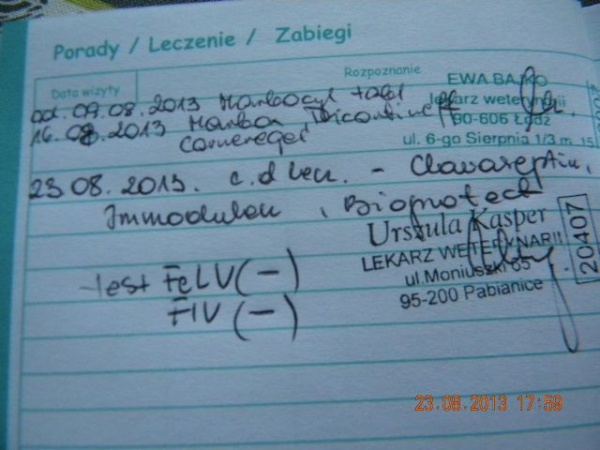 Porady / Leczenie / Zabiegi
Data wizyty
Rozpoznanie
EWA BAJKO
od. 09.08.2013 Marbocyl tabl
lekarz weterynarii
16.08.2013 Dicortineff
90-606 Łódź
Corneregel
ul. 6-go Sierpnia 1/3 m. 15
23 08. 2013. c.d lecz. - Clavaseptin,
Immodulen, Bioprotect
Urszula Kasper
LEKARZ WETERYNARII
20407
ul. Moniuszki 65
95-200 Pabianice
test FeLV (-)
FIV (-)
23.08.2013 17:59